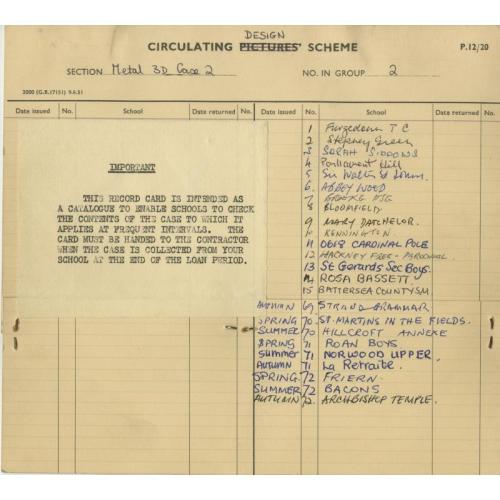 DESIGN
CIRCULATING PICTURES' SCHEME
P.12/20
SECTION Metal 3D Case 2 NO. IN GROUP 2
2000 (G.R.17151) 9.6.51
Date issued No. School Date returned No. Date issued No. School Date returned No.
IMPORTANT
THIS RECORD CARD IS INTENDED AS
A CATALOGUE TO ENABLE SCHOOLS TO CHECK
THE CONTENTS OF THE CASE TO WHICH IT
APPLIES AT FREQUENT INTERVALS. THE
CARD MUST BE HANDED TO THE CONTRACTOR
WHEN THE CASE IS COLLECTED FROM YOUR
SCHOOL AT THE END OF THE LOAN PERIOD.
1 Furzedown T C
2 Stepney Green
3 SARAH SIDDONS
4 Parliament Hill
5 Sir Walter St Johns.
6. ABBEY WOOD
7
8 BLOOMFIELD
9 MARY DATCHELOR.
10 KENNINGTON.
11 0618 CARDINAL POLE
12 HACKNEY FREE - PAROCHIAL
13 St Gerards Sec Boys.
14 ROSA BASSETT.
15 BATTERSEA COUNTY SM
AUTUMN 69. STRAND GRAMMAR
SPRING 70. ST. MARTINS IN THE FIELDS.
SUMMER 70 HILLCROFT ANNEXE
SPRING 71 ROAN BOYS
Summer 71 NORWOOD UPPER.
AUTUMN 71 La Retraite.
SPRING 72 FRIERN.
SUMMER 72 BACONS
AUTUMN 72. ARCHBISHOP TEMPLE.